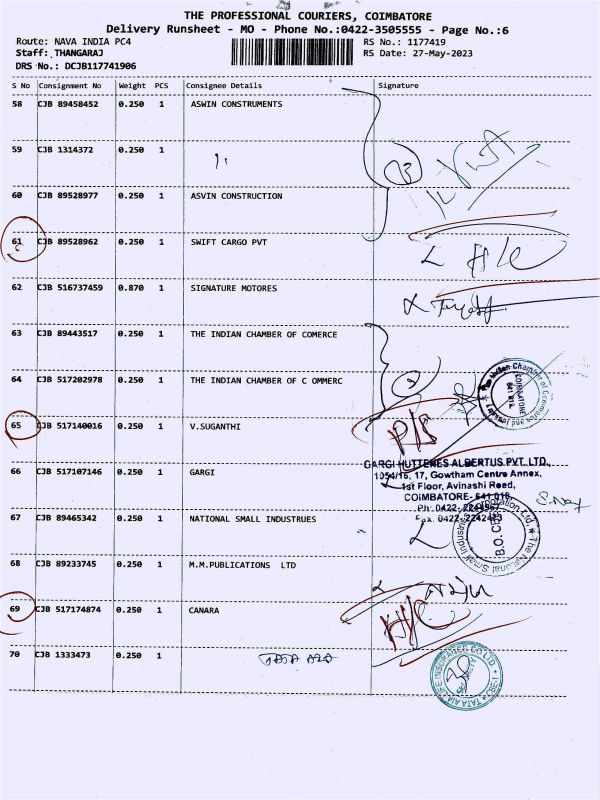 THE PROFESSIONAL COURIERS, COIMBATORE
Delivery Runsheet - MO - Phone No.:0422-3505555 - Page No.:6
Route: NAVA INDIA PC4 RS No.: 1177419
Staff: THANGARAJ RS Date: 27-May-2023
DRS No.: DCJB117741906
S No Consignment No Weight PCS Consignee Details Signature
58 CJB 89458452 0.250 1 ASWIN CONSTRUMENTS
59 CJB 1314372 0.250 1 "
60 CJB 89528977 0.250 1 ASVIN CONSTRUCTION
61 CJB 89528962 0.250 1 SWIFT CARGO PVT
62 CJB 516737459 0.870 1 SIGNATURE MOTORES
63 CJB 89443517 0.250 1 THE INDIAN CHAMBER OF COMERCE
64 CJB 517202978 0.250 1 THE INDIAN CHAMBER OF C OMMERC
65 CJB 517140016 0.250 1 V.SUGANTHI
66 CJB 517107146 0.250 1 GARGI
GARGI HUTTENES ALBERTUS PVT. LTD.,
1054/16, 17, Gowtham Centre Annex,
1st Floor, Avinashi Road,
COIMBATORE- 641 018.
67 CJB 89465342 0.250 1 NATIONAL SMALL INDUSTRUES
68 CJB 89233745 0.250 1 M.M.PUBLICATIONS LTD
69 CJB 517174874 0.250 1 CANARA
70 CJB 1333473 0.250 1